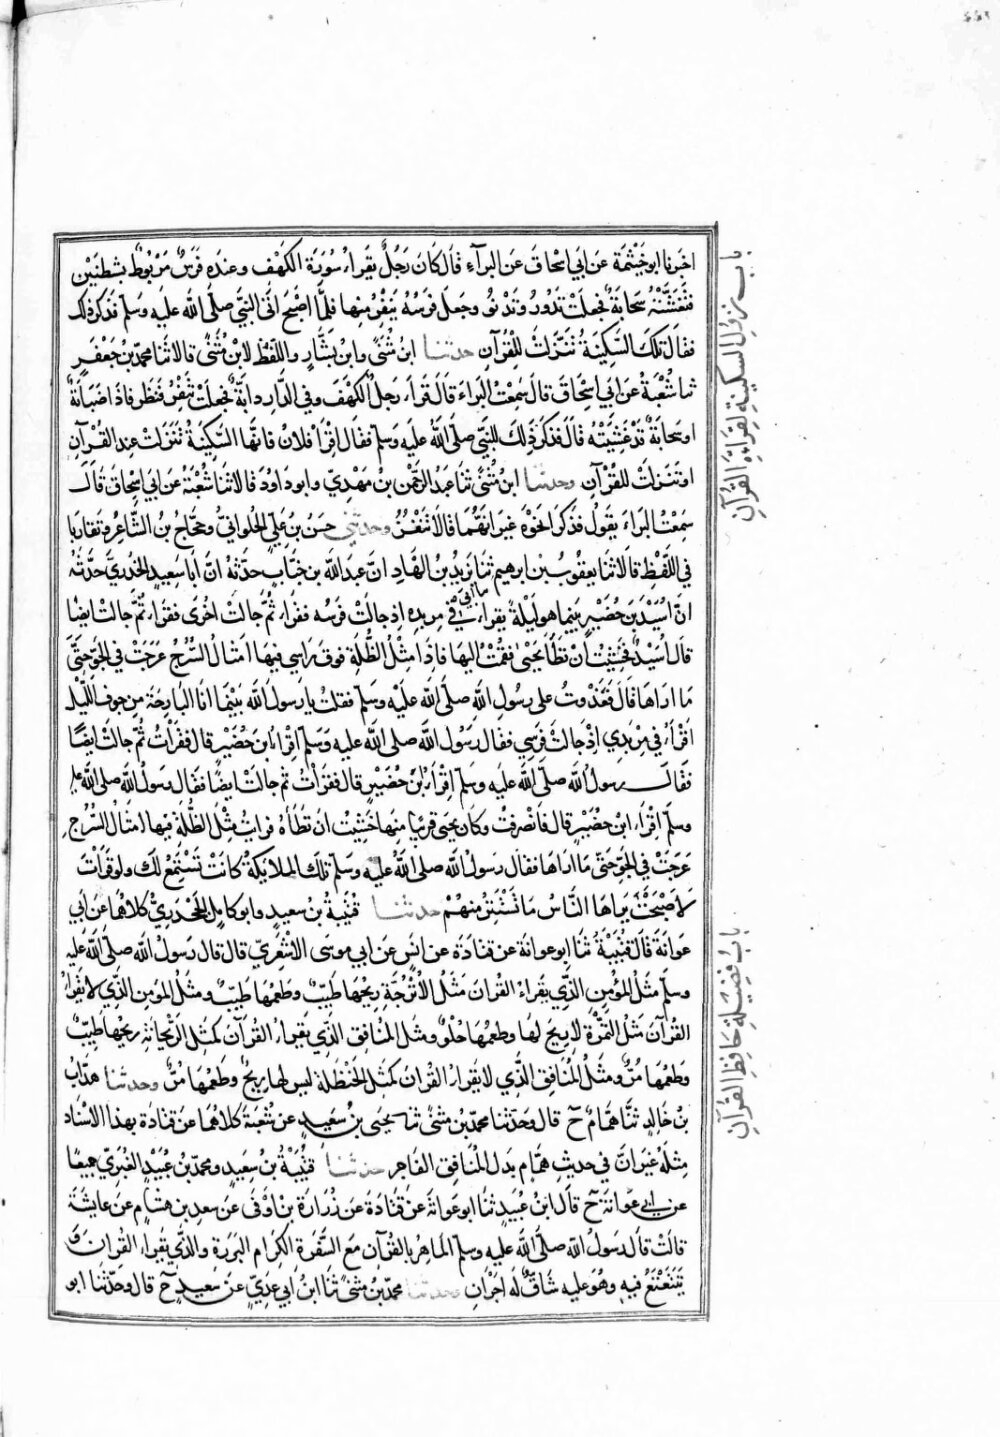 اخبرنا ابو خيثمة عن ابي اسحاق عن البرآء قال كان رجل يقراء سورة الكهف وعنده فرس مربوط بشطنين
فتغشته سحابة فجعلت تدور وتدنو وجعل فرسه ينفر منها فلما اصبح اتى النبي صلى الله عليه وسلم فذكر ذلك
فقال تلك السكينة تنزلت للقرآن حدثنا ابن مثنى وابن بشار واللفظ لابن مثنى قالا ثنا محمد بن جعفر
ثنا شعبة عن ابي اسحاق قال سمعت البراء قال قراء رجل الكهف وفي الدار دابة فجعلت تنفر فنظر فاذا ضبابة
او سحابة قد غشيته قال فذكر ذلك للنبي صلى الله عليه وسلم فقال اقرأ فلان فانها السكينة تنزلت عند القرآن
او تنزلت للقرآن وحدثنا ابن مثنى ثنا عبد الرحمن بن مهدي وابو داود قالا ثنا شعبة عن ابي اسحاق قال
سمعت البراء يقول فذكرا نحوه غير انهما قالا تنفز وحدثني حسن بن علي الحلواني وحجاج بن الشاعر وتقاربا
في اللفظ قالا ثنا يعقوب بن ابرهيم ثنا ابي ثنا يزيد بن الهاد ان عبد الله بن خباب حدثه ان ابا سعيد الخدري حدثه
ان اسيد بن حضير بينما هو ليلة يقراء في مربده اذ جالت فرسه فقراء ثم جالت اخرى فقراء ثم جالت ايضا
قال اسيد فخشيت ان تطا يحيى فقمت اليها فاذا مثل الظلة فوق راسي فيها امثال السرج عرجت في الجو حتى
ما اراها قال فغدوت على رسول الله صلى الله عليه وسلم فقلت يا رسول الله بينما انا البارحة من جوف الليل
اقرأ في مربدي اذ جالت فرسي فقال رسول الله صلى الله عليه وسلم اقراء ابن حضير قال فقرات ثم جالت ايضا
فقال رسول الله صلى الله عليه وسلم اقراء ابن حضير قال فقرات ثم جالت ايضا فقال رسول الله صلى الله عليه
وسلم اقراء ابن حضير قال فانصرفت وكان يحيى قريبا منها خشيت ان تطأه فرايت مثل الظلة فيها امثال السرج
عرجت في الجو حتى ما اراها فقال رسول الله صلى الله عليه وسلم تلك الملايكة كانت تستمع لك ولو قرأت
لاصبحت يراها الناس ما تستتر منهم حدثنا قتيبة بن سعيد وابو كامل الجحدري كلاهما عن ابي
عوانة قال قتيبة ثنا ابو عوانة عن قتادة عن انس عن ابي موسى الاشعري قال قال رسول الله صلى الله عليه
وسلم مثل المؤمن الذي يقراء القران مثل الاترجة ريحها طيب وطعمها طيب ومثل المؤمن الذي لا يقراء
القرآن مثل التمرة لا ريح لها وطعمها حلو ومثل المنافق الذي يقراء القرآن كمثل الريحانة ريحها طيب
وطعمها مر ومثل المنافق الذي لا يقراء القران كمثل الحنظلة ليس لها ريح وطعمها مر وحدثنا هداب
بن خالد ثنا همام ح قال وحدثنا محمد بن مثنى ثنا يحيى بن سعيد عن شعبة كلاهما عن قتادة بهذا الاسناد
مثله غير ان في حديث همام بدل المنافق الفاجر حدثنا قتيبة بن سعيد ومحمد بن عبيد الغبري جميعا
عن ابي عوانة ح قال ابن عبيد ثنا ابو عوانة عن قتادة عن زرارة بن اوفى عن سعد بن هشام عن عايشة
قالت قال رسول الله صلى الله عليه وسلم الماهر بالقرآن مع السفرة الكرام البررة والذي يقراء القران و
يتتعتع فيه وهو عليه شاق له اجران وحدثنا محمد بن مثنى ثنا ابن ابي عدي عن سعيد ح قال وحدثنا ابو
باب نزول السكينة لقراءة القرآن
باب فضيلة حافظ القرآن